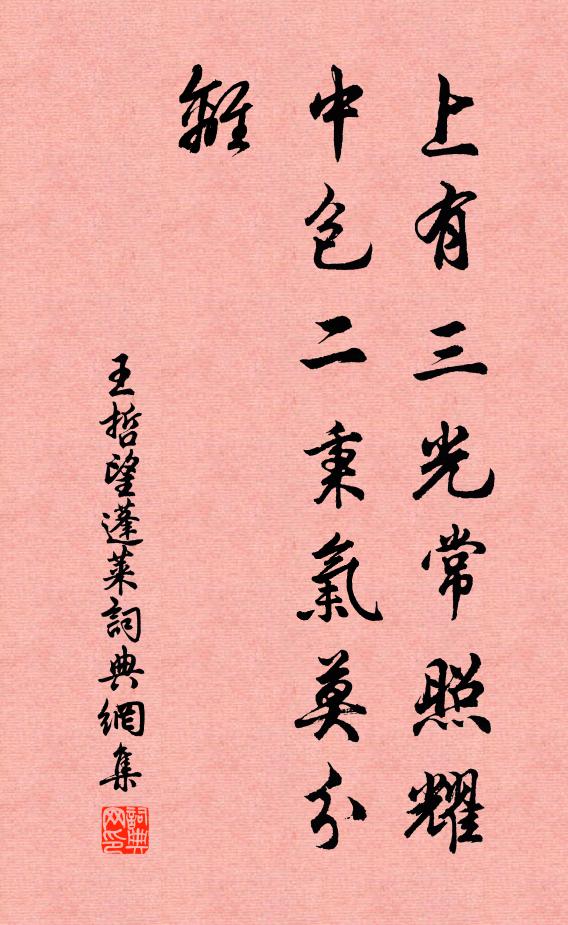 上有三光常照耀
中包二秉氣莫分
離
王哲望蓬萊詞典網集
詞典
网印